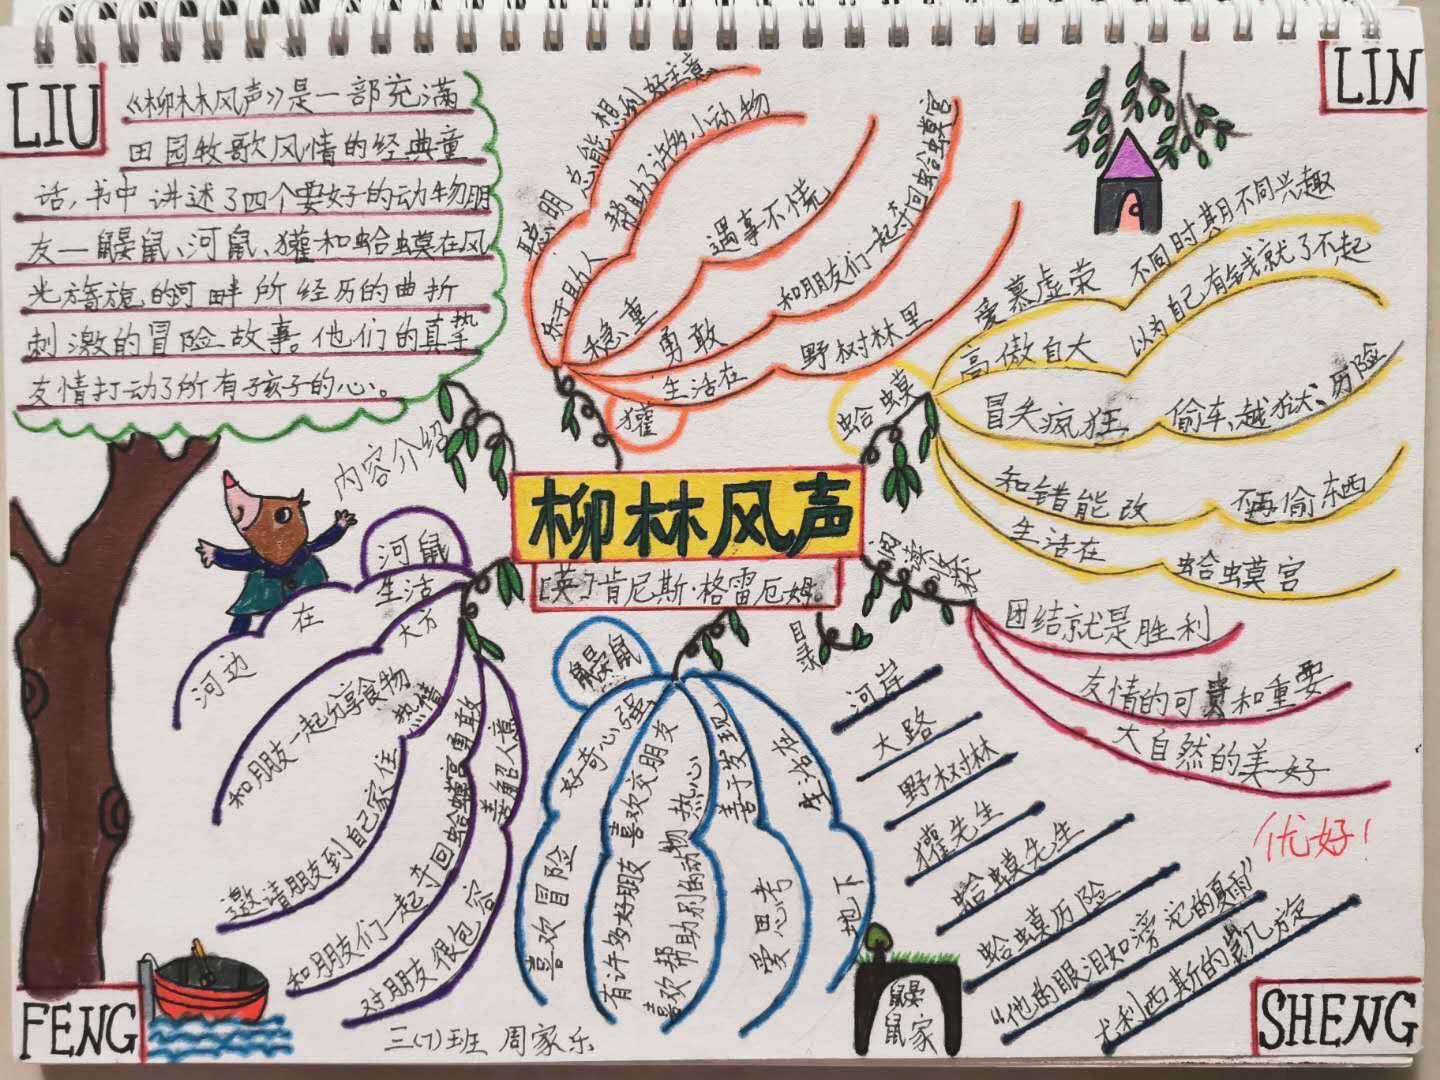 LIU
LIN
《柳林风声》是一部充满
田园牧歌风情的经典童
话,书中讲述了四个要好的动物朋
友—鼹鼠、河鼠、獾和蛤蟆在风
光旖旎的河畔所经历的曲折
刺激的冒险故事。他们的真挚
友情打动了所有孩子的心。
内容介绍
柳林风声
[英]肯尼斯·格雷厄姆
獾
聪明 总能想到好主意
乐于助人 帮助了许多小动物
稳重 遇事不慌
勇敢 和朋友们一起夺回蛤蟆宫
生活在 野树林里
蛤蟆
爱慕虚荣 不同时期不同兴趣
高傲自大 以为自己有钱就了不起
冒失疯狂 偷车、越狱、历险
和错能改 不再偷东西
生活在 蛤蟆宫
阅读收获
团结就是胜利
友情的可贵和重要
大自然的美好
优好!
河鼠
生活在 河边
大方 和朋友一起分享食物
热情 邀请朋友到自己家住
勇敢 和朋友们一起夺回蛤蟆宫
善解人意 对朋友很包容
鼹鼠
好奇心强 喜欢冒险
喜欢交朋友 有许多好朋友
热心 喜欢帮助别的动物
善于发现 爱思考
生活在 地下
目录
河岸
大路
野树林
獾先生
蛤蟆先生
蛤蟆历险
“他的眼泪如滂沱的夏雨”
尤利西斯的凯旋
鼹
鼠家
FENG
三(7)班 周家乐
SHENG